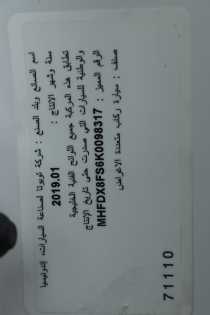 اسم الصانع وبلد الصنع : شركة تويوتا لصناعة السيارات، إندونيسيا
سنة وشهر الإنتاج : 2019.01
تطابق هذه المركبة جميع اللوائح الفنية الخليجية
والوطنية للسيارات التي صدرت حتى تاريخ الإنتاج
الرقم المميز : MHFDX8FS6K0098317
صنف : سيارة ركاب متعددة الأغراض
71110